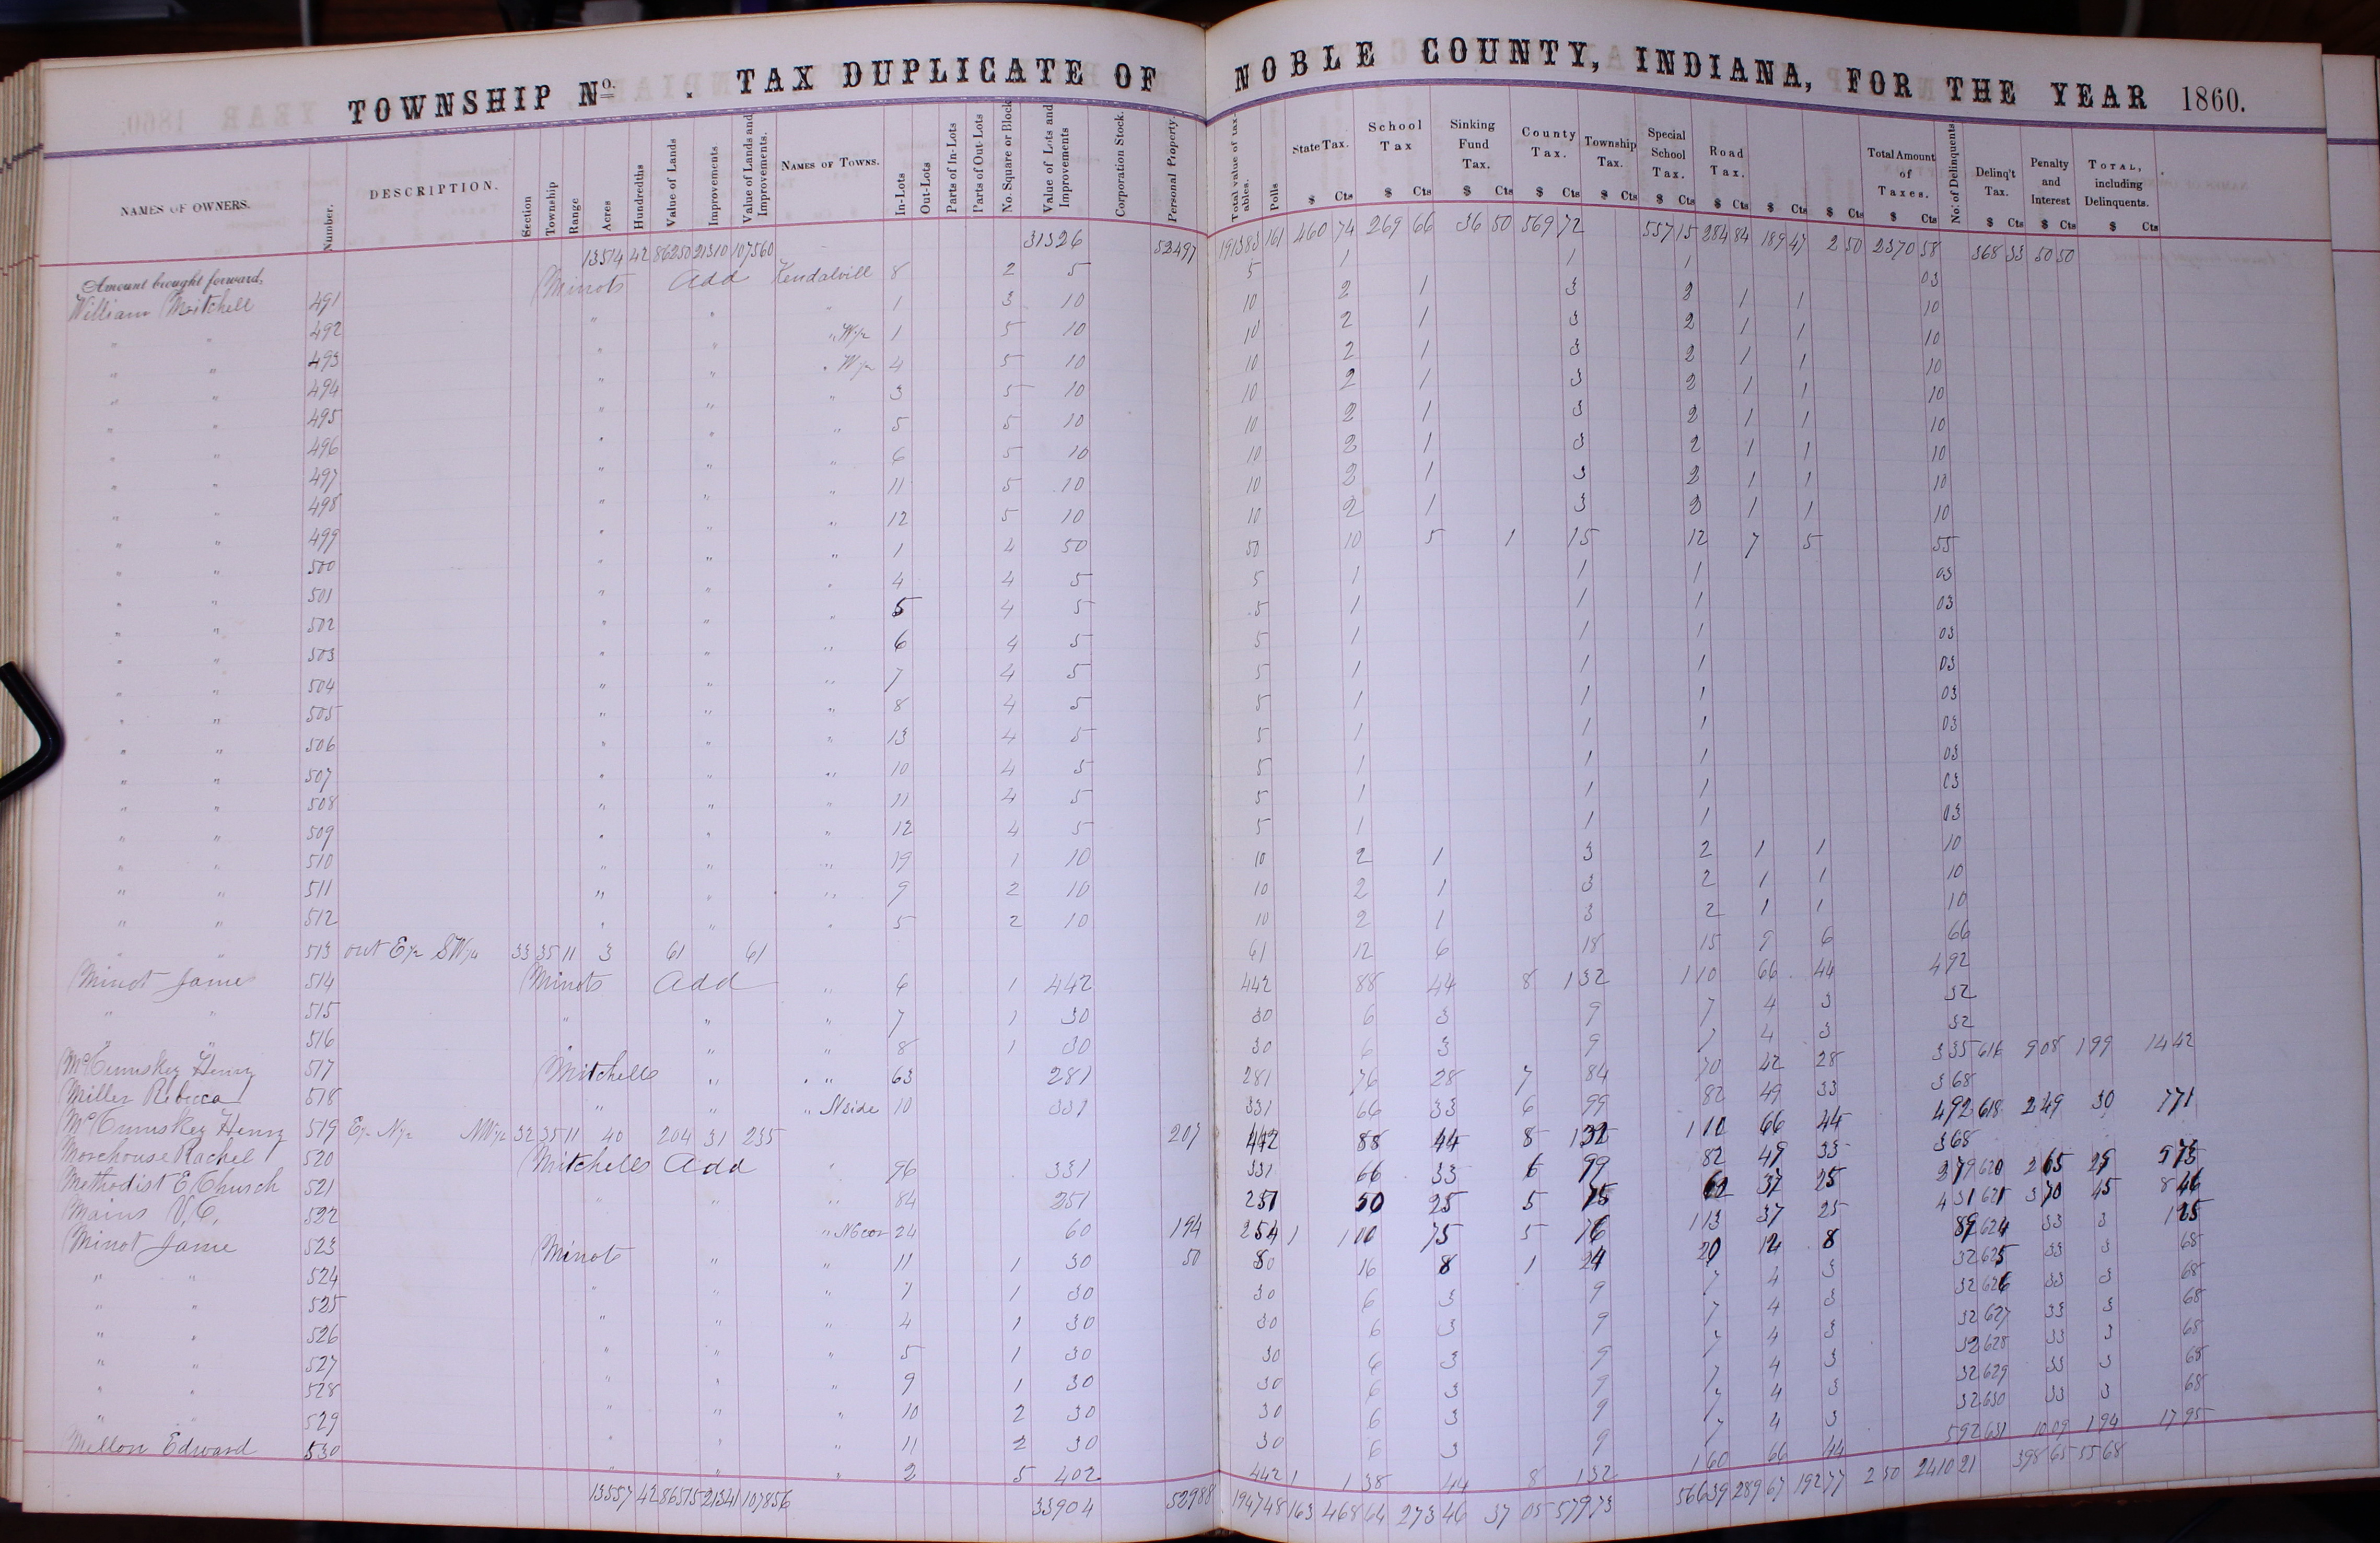 TOWNSHIP No. . TAX DUPLICATE OF NOBLE COUNTY, INDIANA, FOR THE YEAR 1860.
NAMES OF OWNERS. Number. DESCRIPTION. Section Township Range Acres Hundredths Value of Lands Improvements Value of Lands and Improvements. NAMES OF TOWNS. In-Lots Out-Lots Parts of In-Lots Parts of Out-Lots No. Square or Block Value of Lots and Improvements Corporation Stock. Personal Property. Total value of taxables. Polls State Tax. School Tax Sinking Fund Tax. County Tax. Township Tax. Special School Tax. Road Tax. Total Amount of Taxes. No. of Delinquents Delinq't Tax. Penalty and Interest TOTAL, including Delinquents.
$ Cts $ Cts $ Cts $ Cts $ Cts $ Cts $ Cts $ Cts $ Cts $ Cts $ Cts $ Cts $ Cts
Amount brought forward, 13514 42 86250 21310 107560 31326 52497 191383 161 460 74 269 66 36 50 569 72 557 15 284 84 189 47 2 50 2370 58 368 33 50 50
William Mitchell 491 Minots Add Kendalvill 8 2 5 5 1 1 1 03
" " 492 " " " 1 3 10 10 2 1 3 2 1 1 10
" " 493 " " " W½ 1 5 10 10 2 1 3 2 1 1 10
" " 494 " " " W½ 4 5 10 10 2 1 3 2 1 1 10
" " 495 " " " 3 5 10 10 2 1 3 2 1 1 10
" " 496 " " " 5 5 10 10 2 1 3 2 1 1 10
" " 497 " " " 6 5 10 10 2 1 3 2 1 1 10
" " 498 " " " 11 5 10 10 2 1 3 2 1 1 10
" " 499 " " " 12 5 10 10 2 1 3 2 1 1 10
" " 500 " " " 1 4 50 50 10 5 1 15 12 7 5 55
" " 501 " " " 4 4 5 5 1 1 1 03
" " 502 " " " 5 4 5 5 1 1 1 03
" " 503 " " " 6 4 5 5 1 1 1 03
" " 504 " " " 7 4 5 5 1 1 1 03
" " 505 " " " 8 4 5 5 1 1 1 03
" " 506 " " " 13 4 5 5 1 1 1 03
" " 507 " " " 10 4 5 5 1 1 1 03
" " 508 " " " 11 4 5 5 1 1 1 03
" " 509 " " " 12 4 5 5 1 1 1 03
" " 510 " " " 19 1 10 10 2 1 3 2 1 1 10
" " 511 " " " 9 2 10 10 2 1 3 2 1 1 10
" " 512 " " " 5 2 10 10 2 1 3 2 1 1 10
" " 513 out E½ SW¼ 33 35 11 3 61 61 61 12 6 18 15 9 6 66
Minot Jame 514 Minots Add " 6 1 442 442 88 44 8 132 110 66 44 492
" " 515 " " " 7 1 30 30 6 3 9 7 4 3 32
" " 516 " " " 8 1 30 30 6 3 9 7 4 3 32
McCumskey Henry 517 Mitchells " " 63 281 281 76 28 7 84 70 42 28 335 616 908 199 1442
Miller Rebecca 518 " " " N side 10 331 331 66 33 6 99 82 49 33 368
McCumskey Henry 519 E½ N½ NW¼ 32 35 11 40 204 31 235 207 442 88 44 8 132 110 66 44 492 618 249 30 771
Morehouse Rachel 520 Mitchells Add " 96 331 331 66 33 6 99 82 49 33 368
Methodist E Church 521 " " " 84 251 251 50 25 5 75 62 37 25 279 620 265 29 573
Mains V.C. 522 " N6 cor 24 60 194 254 1 100 75 5 76 113 37 25 431 621 370 45 846
Minot Jame 523 Minots " " 11 1 30 50 80 16 8 1 24 20 12 8 89 624 33 3 125
" " 524 " " " 7 1 30 30 6 3 9 7 4 3 32 625 33 3 68
" " 525 " " " 4 1 30 30 6 3 9 7 4 3 32 626 33 3 68
" " 526 " " " 5 1 30 30 6 3 9 7 4 3 32 627 33 3 68
" " 527 " " " 9 1 30 30 6 3 9 7 4 3 32 628 33 3 68
" " 528 " " " 10 2 30 30 6 3 9 7 4 3 32 629 33 3 68
" " 529 " " " 11 2 30 30 6 3 9 7 4 3 32 630 33 3 68
Mellon Edward 530 " " " 2 5 402 442 1 138 44 8 132 160 66 44 592 631 1009 194 1795
13557 42 86515 21341 107856 33904 52988 194748 163 468 64 273 46 37 05 579 73 566 39 289 67 192 77 2 50 2410 21 398 65 55 68